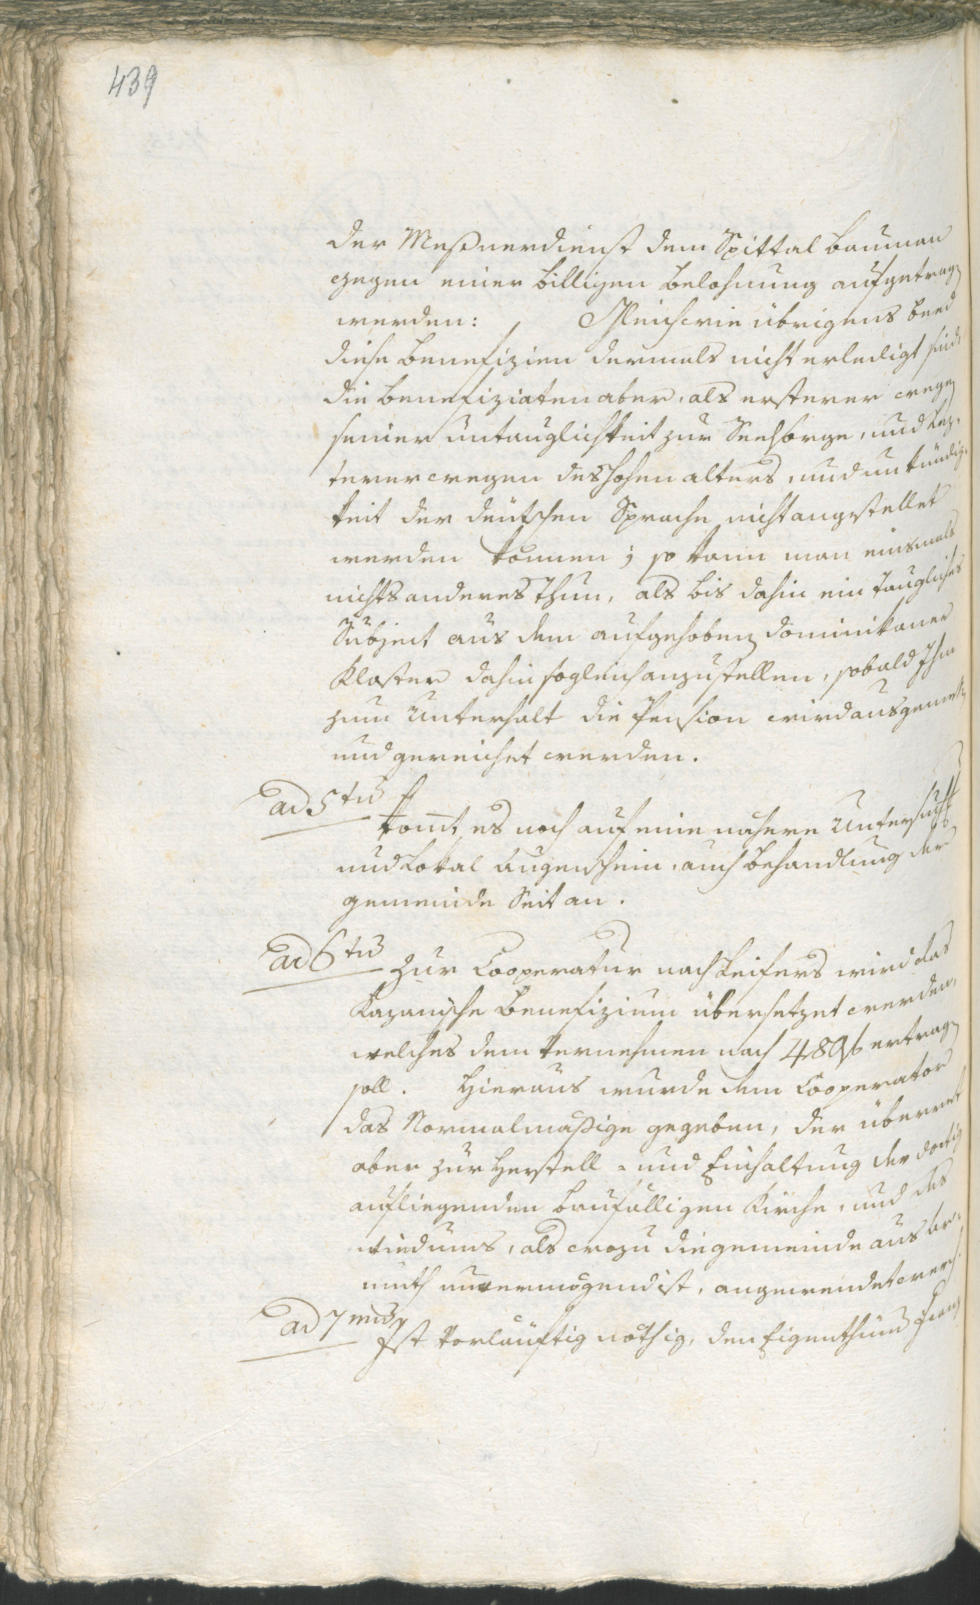 439
der Meßnerdienst dem Spittal bauman
gegen einer billigen belohnung aufgetragen
werden: Gleichwie übrigens beed
diese Benefizien dermals nicht erledigt sind
die Benefiziaten aber, als ersterer wegen
seiner untauglichkeit zur Seelsorge, und lez-
terer wegen des hohen alters, und unkündig-
keit der deütschen Sprache nicht angestellet
werden können; so kann man einsmals
nichts anderes thun, als bis dahin ein taugliches
Subject aus dem aufgehoben Dominikaner
Kloster dahin sogleich anzustellen, sobald Ihm
zum Unterhalt die Pension wird ausgemeßen
und gereichet werden.
ad 5tū komt es noch auf eine nähere Untersuch
und Lokal Augenschein, auch behandlung der
gemeinde Seit an.
ad 6tū Zur Cooperatur nach Leifers wird das
Kazanische Benefizium übersetzet werden,
welches dem Vernehmen nach 489 f ertragen
soll. Hieraus wurde dem Cooperator
das Normalmäßige gegeben, der überrest
aber zur Herstell- und Einhaltung der dortig
aufliegenden baufälligen Kirche, und des
Widums, als wozu die gemeinde aus ar-
muth unvermögend ist, angewendet werd
ad 7mū Ist vorläuftig nöthig, den Eigenthum